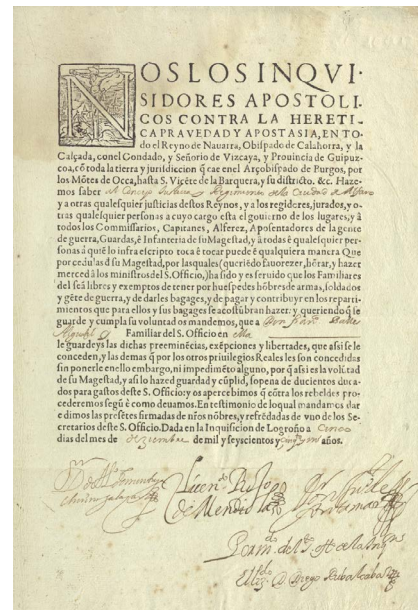 NOS LOS INQVI-
SIDORES APOSTOLI-
COS CONTRA LA HERETI-
CA PRAVEDAD Y APOSTASIA, EN TO-
do el Reyno de Nauarra, Obispado de Calahorra, y la
Calçada, con el Condado, y Señorio de Vizcaya, y Prouincia de Guipuz-
coa, cõ toda la tierra y jurisdiccion q̃ cae en el Arçobispado de Burgos, por
los Mõtes de Occa, hasta S. Viçẽte de la Barquera, y su districto. &c. Haze-
mos saber al Concejo Justicia y Regimiento de la Ciudad de Alfaro
y a otras qualesquier justicias destos Reynos, y a los regidores, jurados, y o-
tras qualesquier personas a cuyo cargo esta el gouierno de los lugares, y â
todos los Commissarios, Capitanes, Alferez, Aposentadores de la gente
de guerra, Guardas, ê Infanteria de su Magestad, y â todas ê qualesquier per-
sonas â quiẽ lo infra escripto toca ê tocar puede ê qualquiera manera Que
por cedulas d̃ su Magestad, por las quales (queriẽdo fauorezer, hõrar, y hazer
merced â los ministros del S. Officio,) ha sido y es seruido que los Familiares
del seã libres y exemptos de tener por huespedes hõbres de armas, soldados
y gẽte de guerra, y de darles bagages, y de pagar y contribuyr en los reparti-
mientos que para ellos y sus bagages se acostũbran hazer: y queriendo q̃ se
guarde y cumpla su voluntad os mandemos, que a Don
Miguel Familiar del S. Officio en ella
le guardeys las dichas preeminẽcias, exẽpciones y libertades, que assi se le
conceden, y las demas q̃ por los otros priuilegios Reales les son concedidas
sin ponerle en ello embargo, ni impedimẽto alguno, por q̃ assi es la volũtad
de su Magestad, y assi lo hazed guardad y cũplid, so pena de ducientos duca-
dos para gastos deste S. Officio: y os apercebimos q̃ contra los rebeldes pro-
cederemos segũ ê como deuamos. En testimonio de lo qual mandamos dar
e dimos las presẽtes firmadas de nr̃os nõbres, y refrẽdadas de vno de los Se-
cretarios deste S. Officio. Dada en la Inquisicion de Logroño a Cinco
dias del mes de Deziembre de mil y seyscientos y años.